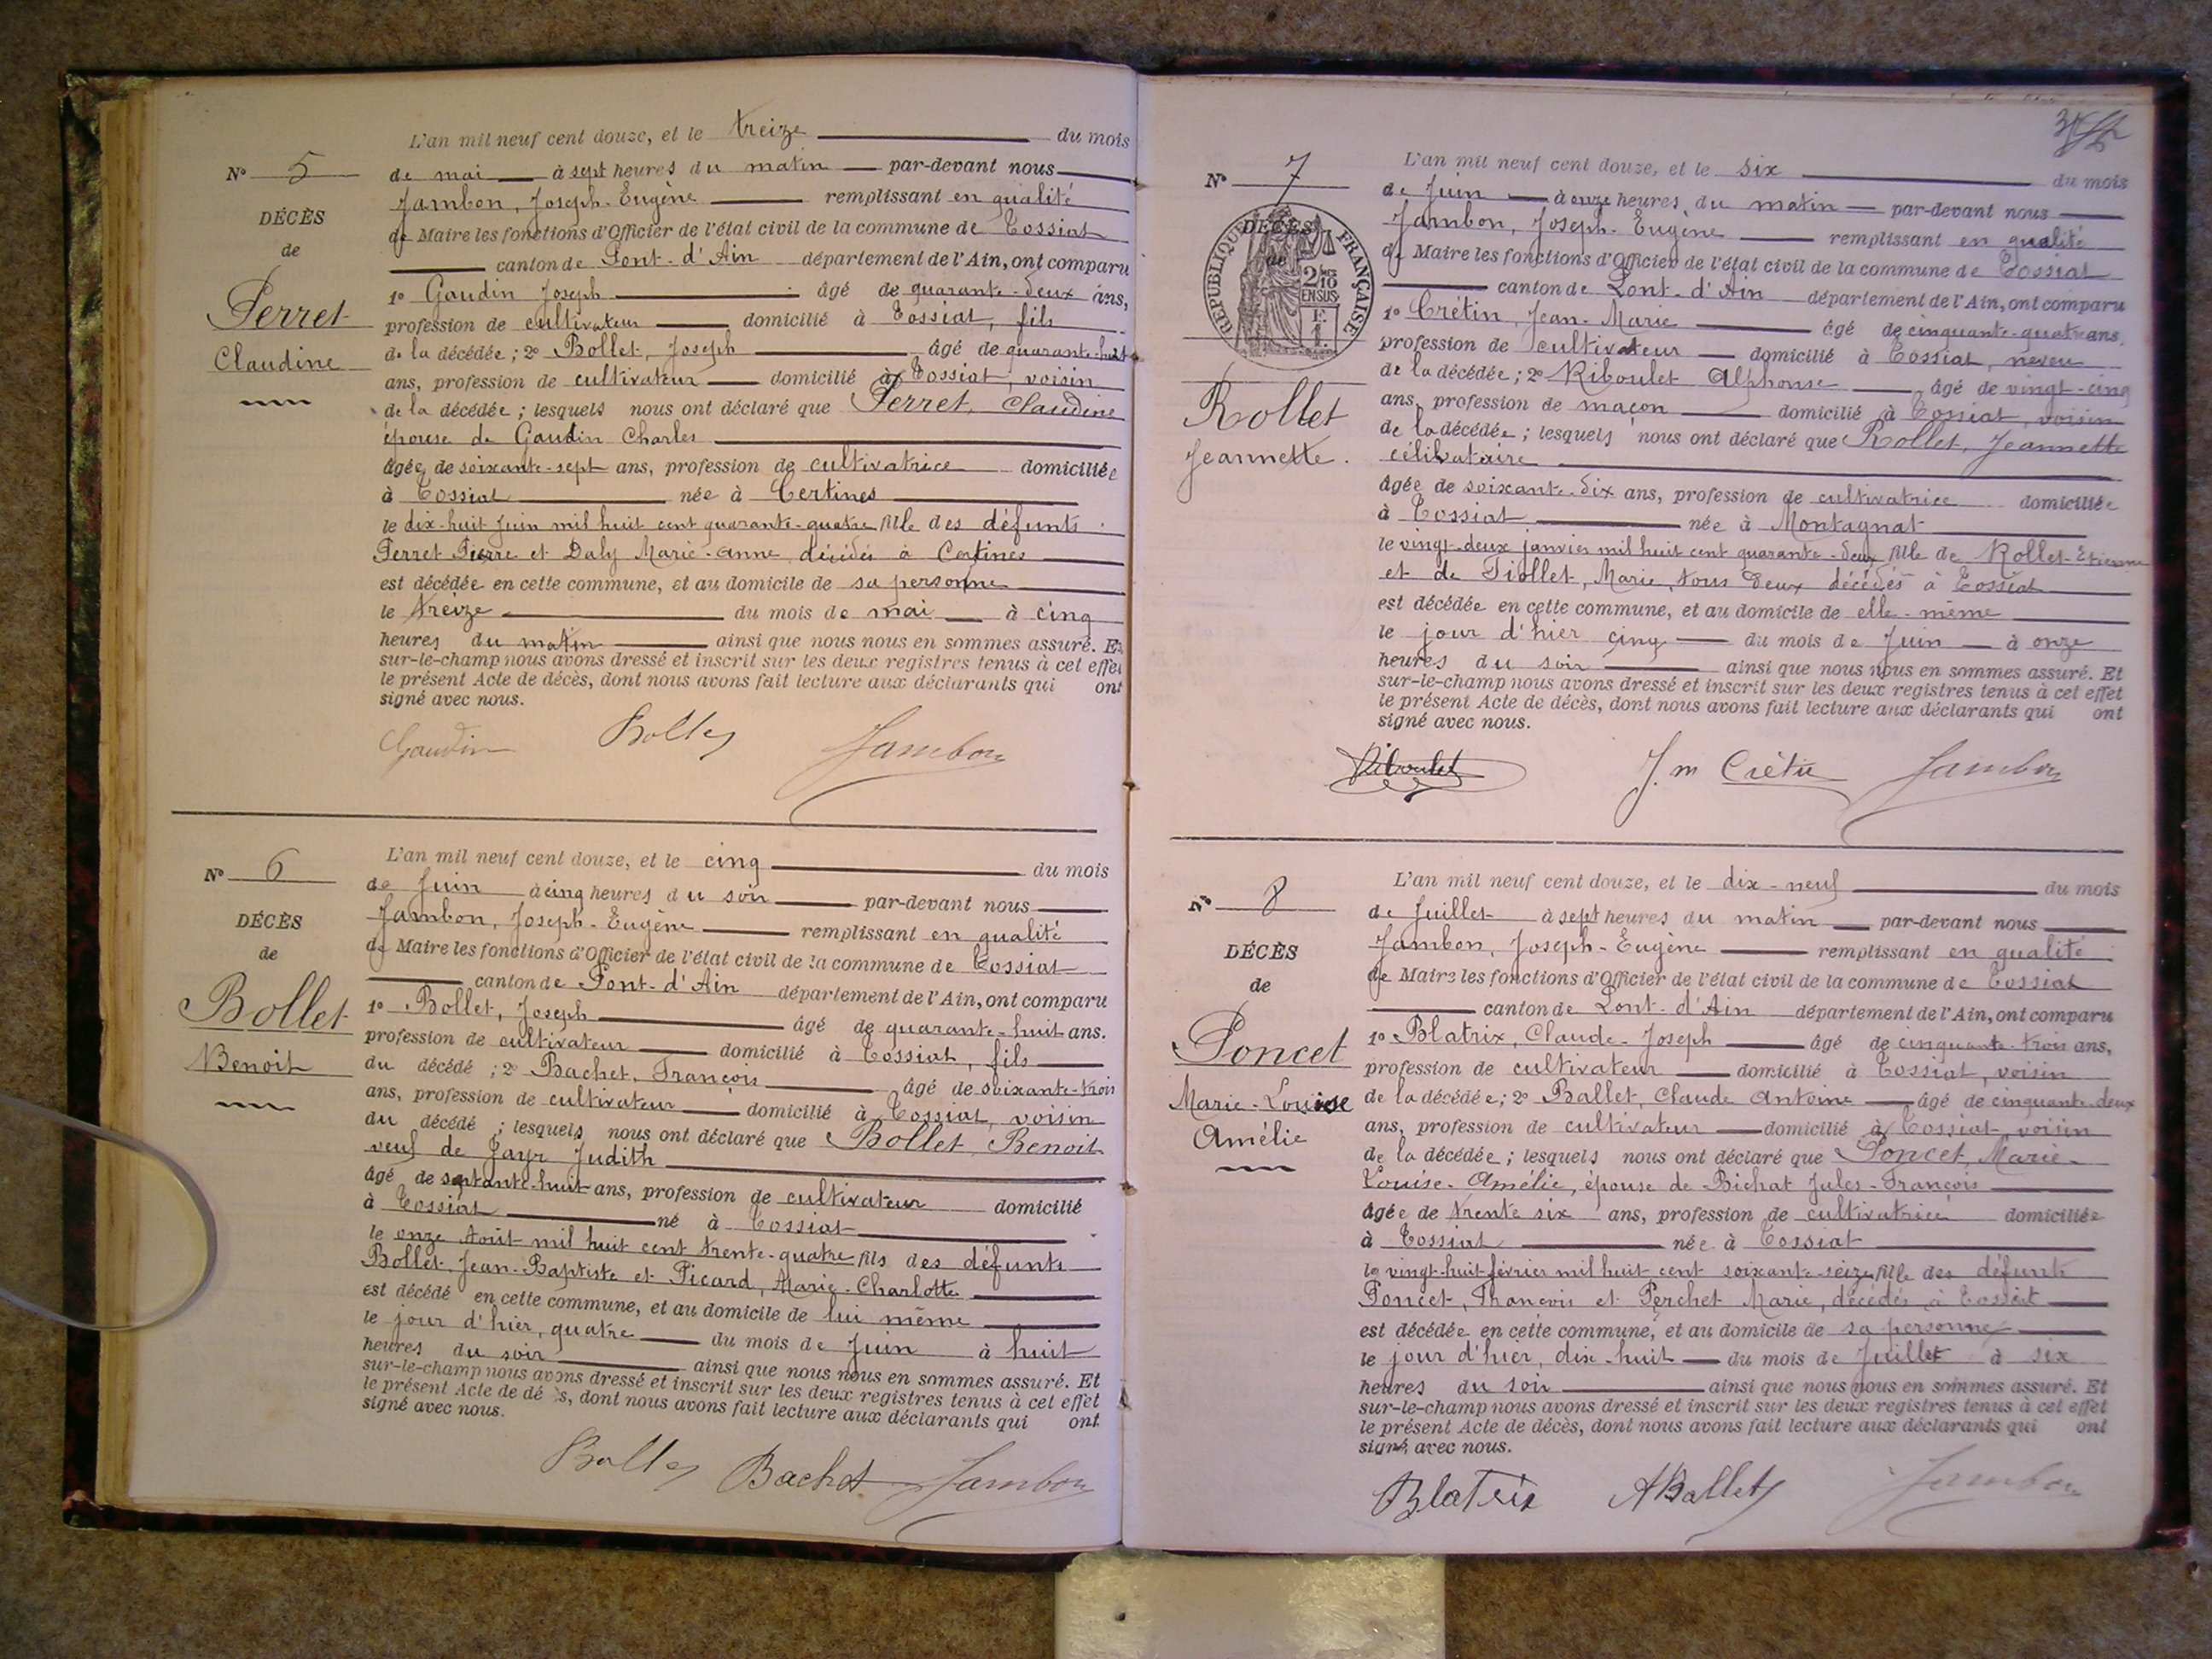 L'an mil neuf cent douze, et le treize du mois
N° 5
de mai à sept heures du matin par-devant nous
Jambon, Joseph-Eugène remplissant en qualité
DÉCÈS
de Maire les fonctions d'Officier de l'état civil de la commune de Tossiat
de
canton de Pont-d'Ain département de l'Ain, ont comparu
1° Gaudin Joseph âgé de quarante-deux ans,
Perret
profession de cultivateur domicilié à Tossiat, fils
Claudine
de la décédée; 2° Bollet, Joseph âgé de quarante-huit
ans, profession de cultivateur domicilié à Tossiat, voisin
de la décédée; lesquels nous ont déclaré que Perret, Claudine
épouse de Gaudin Charles
âgée de soixante-sept ans, profession de cultivatrice domiciliée
à Tossiat née à Certines
le dix-huit Juin mil huit cent quarante-quatre fille des défunts
Perret Pierre et Daly Marie-Anne, décédés à Certines
est décédée en cette commune, et au domicile de sa personne
le treize du mois de mai à cinq
heures du matin ainsi que nous nous en sommes assuré. Et
sur-le-champ nous avons dressé et inscrit sur les deux registres tenus à cet effet
le présent Acte de décès, dont nous avons fait lecture aux déclarants qui ont
signé avec nous.
Gaudin Bollet Jambon
L'an mil neuf cent douze, et le cinq du mois
N° 6
de Juin à cinq heures du soir par-devant nous
Jambon, Joseph-Eugène remplissant en qualité
DÉCÈS
de Maire les fonctions d'Officier de l'état civil de la commune de Tossiat
de
canton de Pont-d'Ain département de l'Ain, ont comparu
Bollet
1° Bollet, Joseph âgé de quarante-huit ans.
profession de cultivateur domicilié à Tossiat, fils
Benoit
du décédé; 2° Bachet, François âgé de soixante-trois
ans, profession de cultivateur domicilié à Tossiat, voisin
du décédé; lesquels nous ont déclaré que Bollet, Benoit
veuf de Jayr Judith
âgé de septante-huit ans, profession de cultivateur domicilié
à Tossiat né à Tossiat
le onze Août mil huit cent trente-quatre fils des défunts
Bollet, Jean-Baptiste et Picard, Marie-Charlotte
est décédé en cette commune, et au domicile de lui même
le jour d'hier, quatre du mois de Juin à huit
heures du soir ainsi que nous nous en sommes assuré. Et
sur-le-champ nous avons dressé et inscrit sur les deux registres tenus à cet effet
le présent Acte de dé s, dont nous avons fait lecture aux déclarants qui ont
signé avec nous.
Bollet Bachet Jambon
L'an mil neuf cent douze, et le six du mois
N° 7
de Juin à onze heures du matin par-devant nous
Jambon, Joseph-Eugène remplissant en qualité
DÉCÈS
de
RÉPUBLIQUE FRANÇAISE
2/10
EN SUS
F.
1.
de Maire les fonctions d'Officier de l'état civil de la commune de Tossiat
canton de Pont-d'Ain département de l'Ain, ont comparu
1° Crétin, Jean-Marie âgé de cinquante-quatre ans.
profession de cultivateur domicilié à Tossiat, neveu
de la décédée; 2° Riboulet Alphonse âgé de vingt-cinq
Rollet
ans, profession de maçon domicilié à Tossiat, voisin
de la décédée; lesquels nous ont déclaré que Rollet, Jeannette
Jeannette.
célibataire
âgée de soixante-dix ans, profession de cultivatrice domiciliée
à Tossiat née à Montagnat
le vingt-deux janvier mil huit cent quarante-deux fille de Rollet Etienne
et de Tiollet, Marie, tous deux décédés à Tossiat
est décédée en cette commune, et au domicile de elle-même
le jour d'hier cinq du mois de Juin à onze
heures du soir ainsi que nous nous en sommes assuré. Et
sur-le-champ nous avons dressé et inscrit sur les deux registres tenus à cet effet
le présent Acte de décès, dont nous avons fait lecture aux déclarants qui ont
signé avec nous.
Riboulet J. m Crétin Jambon
L'an mil neuf cent douze, et le dix-neuf du mois
N° 8
de Juillet à sept heures du matin par-devant nous
Jambon, Joseph-Eugène remplissant en qualité
DÉCÈS
de Maire les fonctions d'Officier de l'état civil de la commune de Tossiat
de
canton de Pont-d'Ain département de l'Ain, ont comparu
Poncet
1° Blatrix, Claude-Joseph âgé de cinquante-trois ans,
profession de cultivateur domicilié à Tossiat, voisin
Marie-Louise
de la décédée; 2° Ballet, Claude Antoine âgé de cinquante-deux
Amélie
ans, profession de cultivateur domicilié à Tossiat, voisin
de la décédée; lesquels nous ont déclaré que Poncet, Marie-
Louise-Amélie, épouse de Bichat Jules-François
âgée de trente six ans, profession de cultivatrice domiciliée
à Tossiat née à Tossiat
le vingt-huit février mil huit cent soixante-seize fille des défunts
Poncet, François et Perchet Marie, décédés à Tossiat
est décédée en cette commune, et au domicile de sa personne
le jour d'hier, dix-huit du mois de Juillet à six
heures du soir ainsi que nous nous en sommes assuré. Et
sur-le-champ nous avons dressé et inscrit sur les deux registres tenus à cet effet
le présent Acte de décès, dont nous avons fait lecture aux déclarants qui ont
signé avec nous.
Blatrix ABallet Jambon